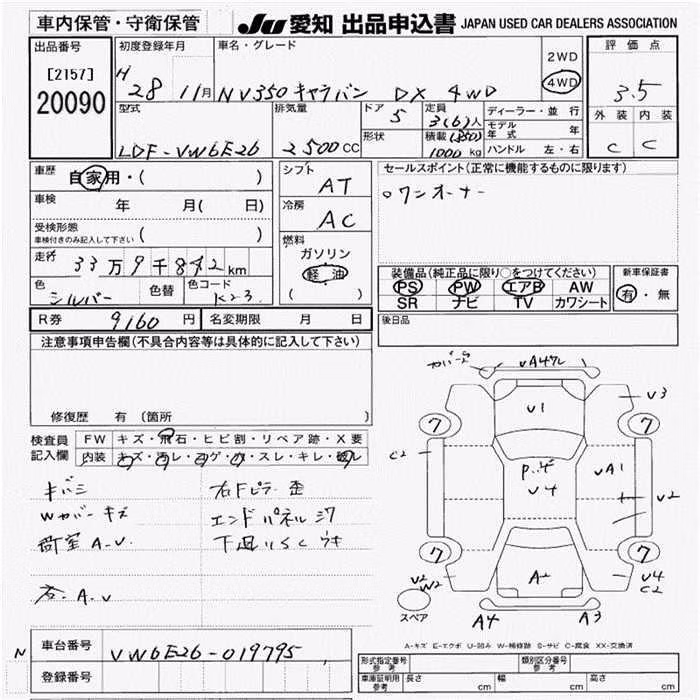 車内保管・守衛保管
JU 愛知 出品申込書 JAPAN USED CAR DEALERS ASSOCIATION
出品番号
[2157]
20090
初度登録年月
H 28 11月
車名・グレード
NV350 キャラバン DX 4WD
2WD
4WD
評価点
3.5
外装 内装
C C
型式
LDF-VW6E26
排気量
2500CC
ドア
5
形状
定員
3(6)人
積載(850)
1000kg
ディーラー・並行
モデル年式 年
ハンドル 左・右
車歴
自家用・( )
車検 年 月( 日)
受検形態
車検付きのみ記入して下さい ( )
走行 33万9千842km
色 シルバー 色替 色コード K23
シフト
AT
冷房
AC
燃料
ガソリン
軽油
( )
セールスポイント(正常に機能するものに限ります)
ワンオーナー
装備品(純正品に限り○をつけてください)
PS PW エアB AW
SR ナビ TV カワシート
新車保証書
有・無
後日品
R券 9160円 名変期限 月 日
注意事項申告欄(不具合内容等は具体的に記入して下さい)
修復歴 有 (箇所 )
検査員記入欄
FW キズ・飛石・ヒビ割・リペア跡・X要
内装 キズ・汚レ・コゲ・穴・スレ・キレ・破レ
キバミ
Wカバーキズ
荷室 A.U.
右Fピラー歪
エンドパネルシワ
A.U
カバーヌケ
UA4ワレ
U1
U3
7
7
C2
UA1
U4
U2
7
7
U2
W2
A2
U4
C2
スペア
A4
A3
A-キズ E-エクボ U-凹み W-補修跡 S-サビ C-腐食 XX-交換済
N
車台番号 VW6E26-019795
登録番号
形式指定番号 参考
類別区分番号 参考
車庫証明用 参考 長さ cm 幅 cm 高さ cm